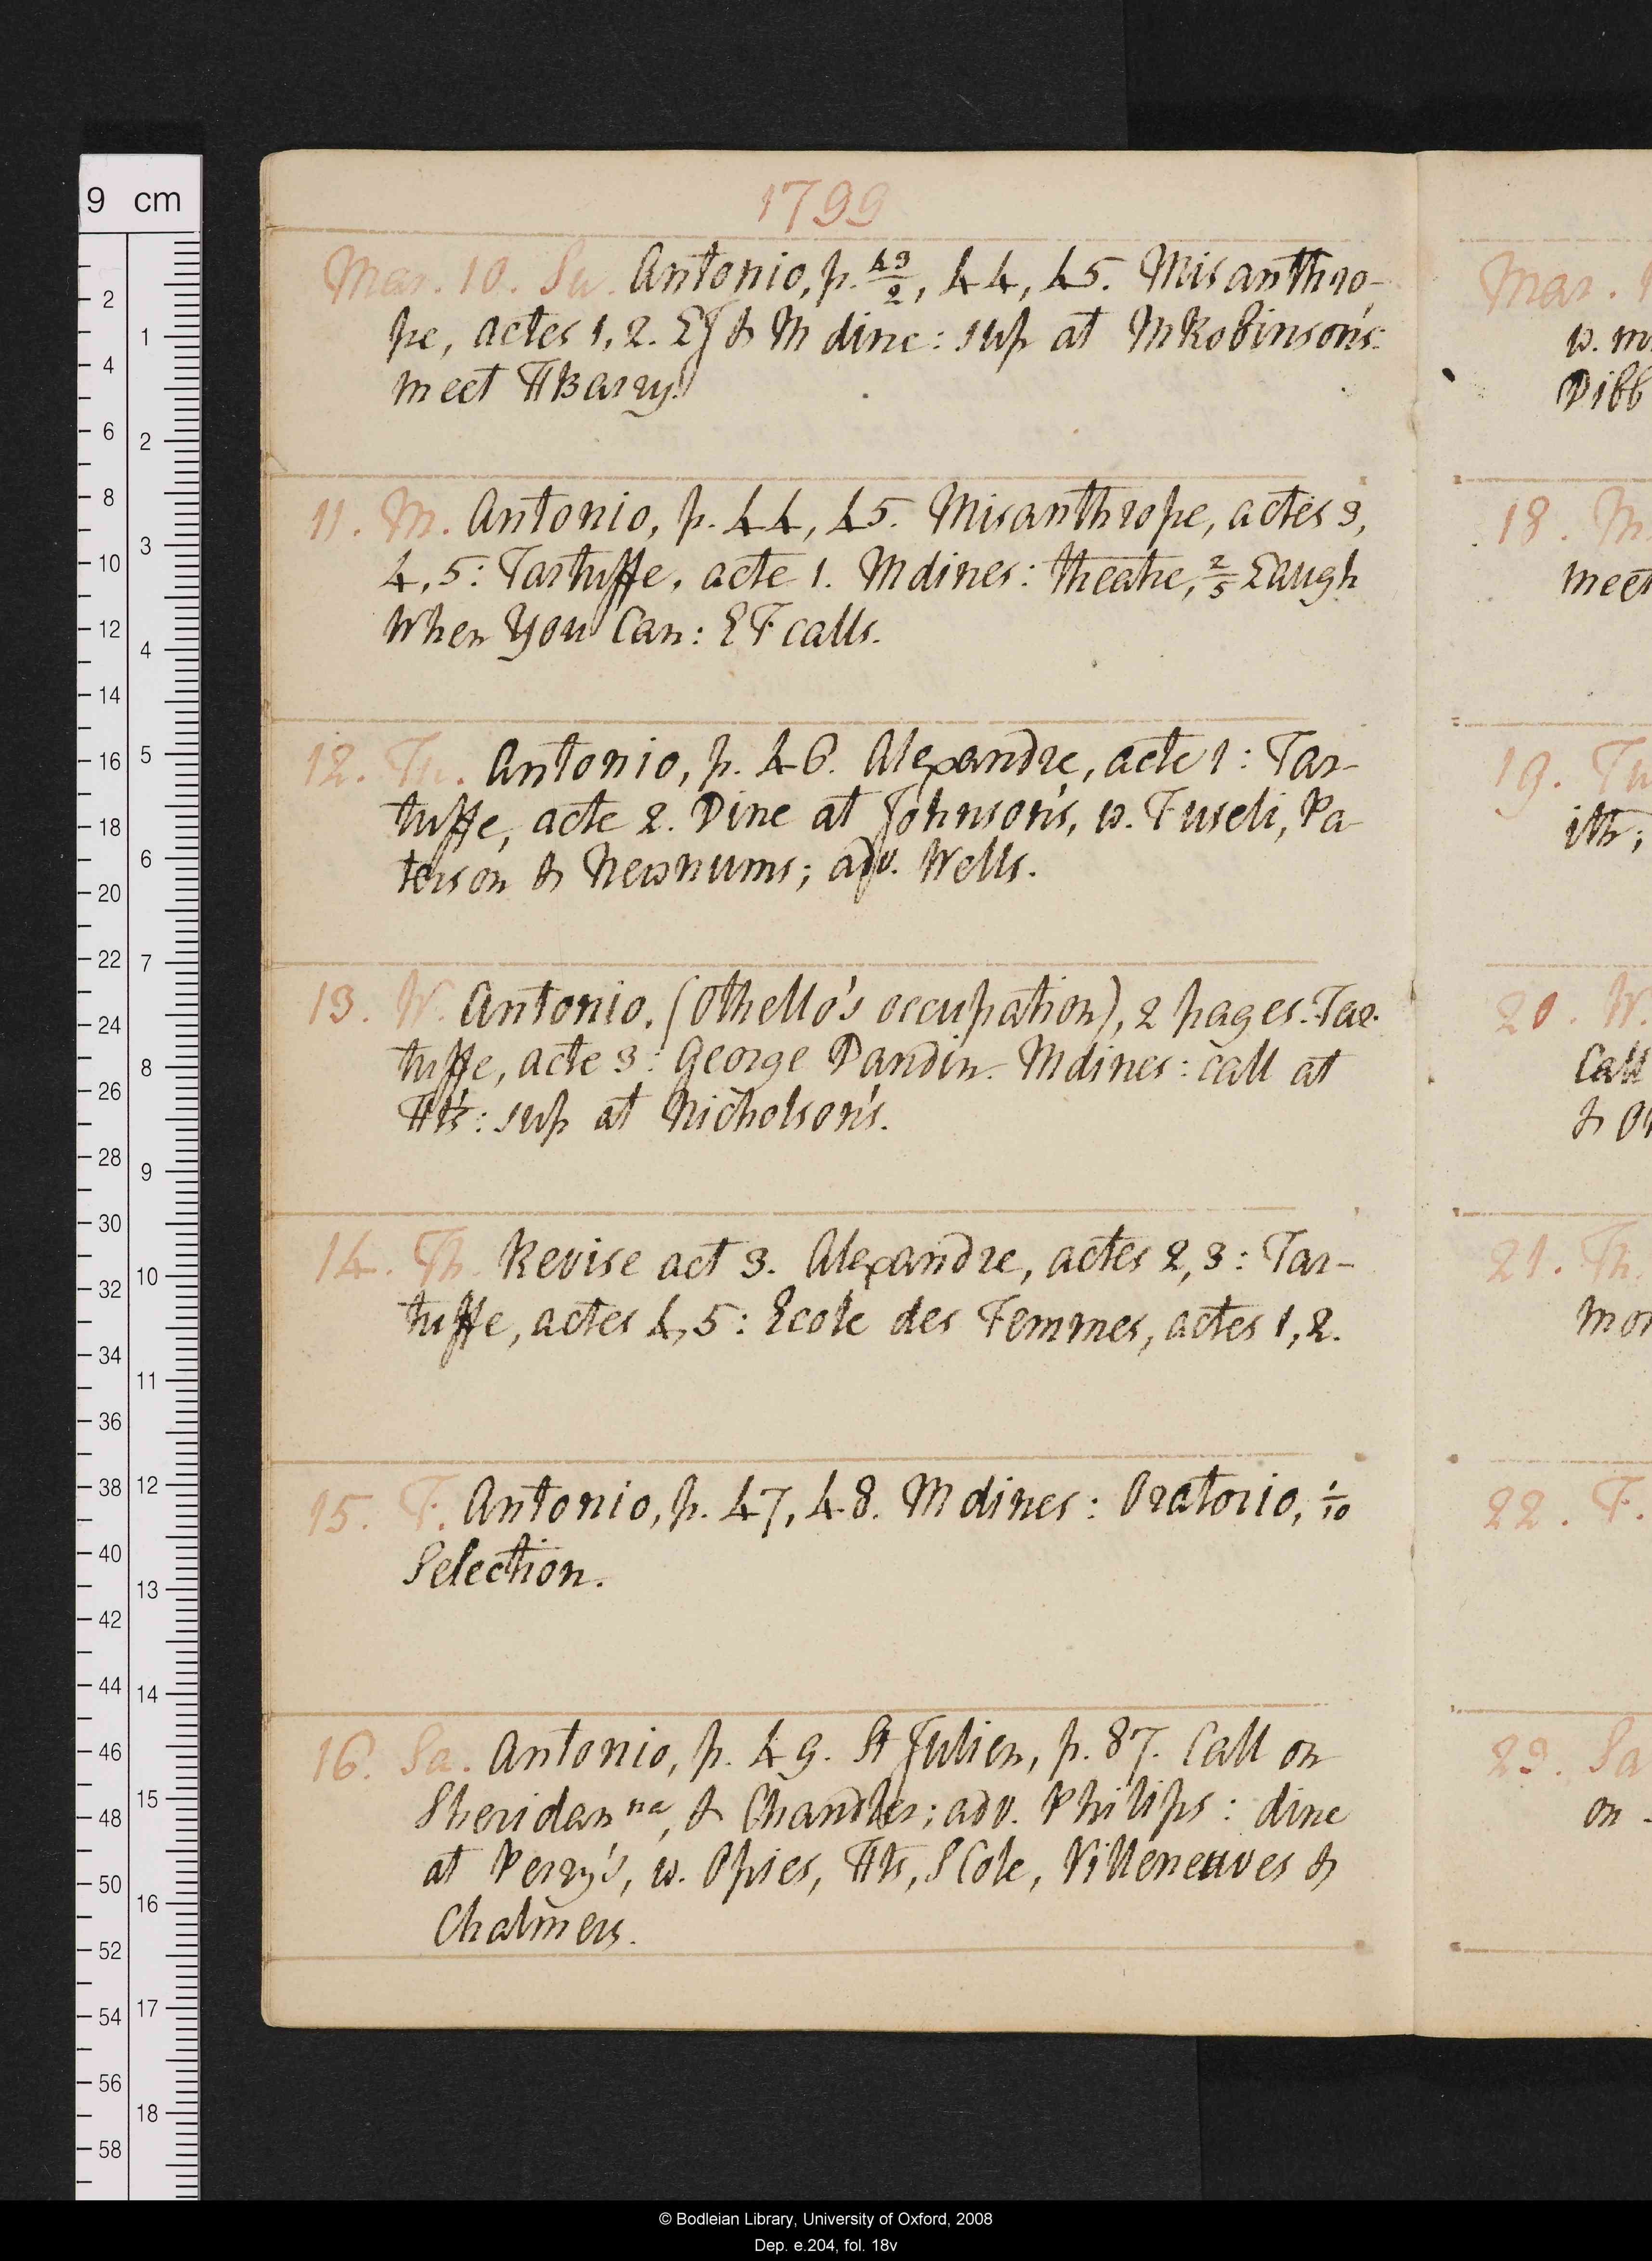 1799
Mar. 10. Su. Antonio, p. 43/2, 44, 45. Misanthro-
pe, actes 1, 2. LJ & M dine: sup at MRobinson's:
meet HBarry.
11. M. Antonio, p. 44, 45. Misanthrope, actes 3,
4, 5: Tartuffe, acte 1. M dines: theatre, 2/5 Laugh
When You Can: EF calls.
12. Tu. Antonio, p. 46. Alexandre, acte 1: Tar-
tuffe, acte 2. Dine at Johnson's, w. Fuseli, Pa-
terson & Newnums; adv. Wells.
13. W. Antonio, (Othello's occupation), 2 pages. Tar-
tuffe, acte 3: George Dandin. M dines: call at
Ht's: sup at Nicholson's.
14. Th. Revise act 3. Alexandre, actes 2, 3: Tar-
tuffe, actes 4, 5: Ecole des Femmes, actes 1, 2.
15. F. Antonio, p. 47, 48. M dines: Oratorio, 1/10
Selection.
16. Sa. Antonio, p. 49. St Julien, p. 87. Call on
Sheridan na, & Chandler; adv. Philips: dine
at Perry's, w. Opies, Hts, SCole, Villeneuves &
Chalmers.
Mar.
w. m
Dibb
18. M.
meet
19. Tu
ith;
20. W.
Call
21. Th.
mor
22. F.
23. Sa
on
9 cm
2
4
6
8
10
12
14
16
18
20
22
24
26
28
30
32
34
36
38
40
42
44
46
48
50
52
54
56
58
1
2
3
4
5
6
7
8
9
10
11
12
13
14
15
16
17
18
© Bodleian Library, University of Oxford, 2008
Dep. e.204, fol. 18v